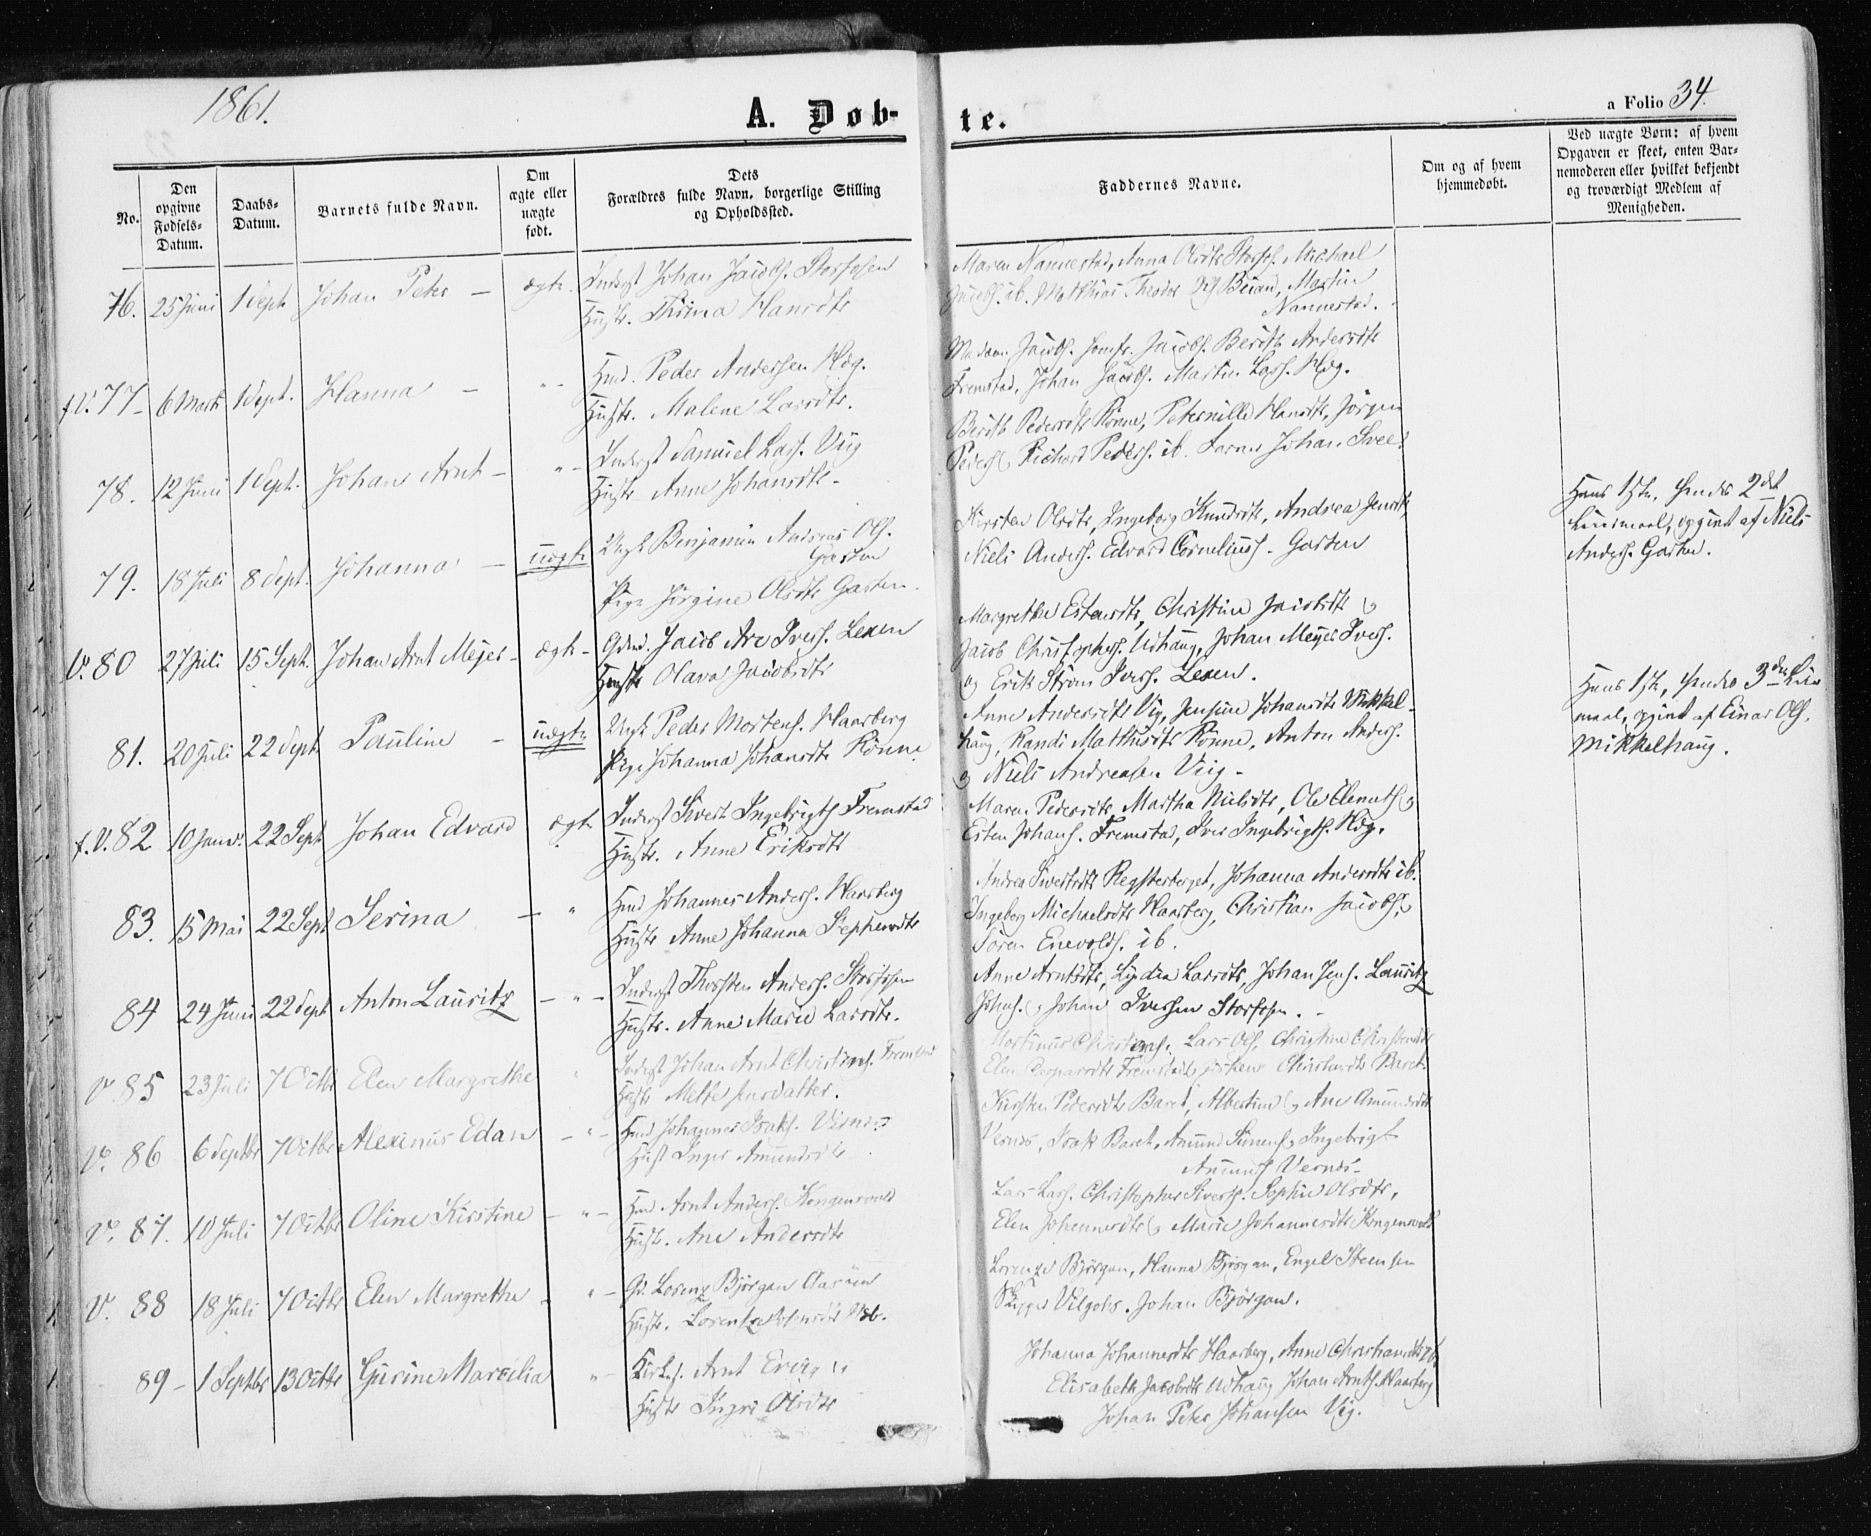 1861.
A. Døb-
te.
a Folio 34.
No.
Den
opgivne
Fødsels-
Datum.
Daabs-
Datum.
Barnets fulde Navn.
Om
ægte eller
uægte
født.
Dets
Forældres fulde Navn, borgerlige Stilling
og Opholdssted.
Faddernes Navne.
Om og af hvem
hjemmedøbt.
Ved uægte Børn: af hvem
Opgaven er skeet, enten Bar-
nemoderen eller hvilket bekjendt
og troværdigt Medlem af
Menigheden.
76. 25 Juni 1 Sept. Johan Peter – ægte. Inderst Johan Jacobs. Storfosen
Hustr. Hansdtr
Maren Nannestad, Anna Olsdtr Storfos. Michael
Jacobs. ib. Matthias Theodor Beian, Martin
Nannestad.
f.V. 77 – 6 Marts 1 Sept. Hanna – Hmd. Peder Andersen Høg.
Hustr. Malene Larsdtr.
Madam Jacobs. Jomfr. Jacobs. Berith Andersdtr
Fremstad, Johan Jacobs. Martin Lars. Høg.
78. 12 Juni 1 Sept. Johan Arnt – Inderst Samuel Lars. Viig
Hustr Anne Johansdtr –
Berith Pedersdtr Rønne, Peternille Hansdtr, Jørgen
Peders. Richard Peders. ib. Johan
79. 18 Juli 8 Sept. Johanna – uægte Ungk. Benjamin Andreas Ols.
Garten
Pige Jørgine Olsdtr Garten.
Kirsten Olsdtr, Ingeborg Knudsdtr, Andrea Jensdtr,
Niels Anders. Edvard Cornelius. Garten
Hans 1ste, hendes 2det
Leiermaal, opgivet af Niels
Anders. Garten.
V. 80 27 Juli 15 Sept. Johan Arnt Meyer – ægte – Gdmd. Jacob Are Ivers. Lexen
Hustr Olava Jacobsdtr
Margrethe Estensdtr, Christine Jacobsdtr
Jacob Christophers. Udhaug, Johan Meyer Ivers.
og Erik Strøm Ivers. Lexen.
81. 20 Juli 22 Sept. Pauline – uægte Ungk Peder Mortens. Haarberg
Pige Johanna Johansdtr Rønne.
Anne Andersdtr Vig, Jensine Johansdtr Mikkel-
haug, Randi Matthisdtr Rønne, Anton Anders.
og Niels Andreasen Viig –
Hans 1ste, hendes 3die Leier
maal, opgivet af Einar Ols.
Mikkelhaug.
f.V. 82 10 Janv. 22 Sept Johan Edvard ægte Inderst Sivert Ingebrigts. Fremstad
Hustr. Anne Eriksdtr
Maren Pedersdtr, Martha Nielsdtr, Ole
Esten Johans. Fremstad, Iver Ingebrigts. Høg.
83. 15 Mai 22 Sept Serina – " Hmd Johannes Anders. Haarberg
Hustr Anne Johanna
Andrea Sivertsdtr, Johanna Andersdtr ib.
Ingeborg Michaelsdtr Haarberg, Christian Jacobs.
Søren Enevolds. ib.
84 24 Juni 22 Sept Anton Lauritz – " – Inderst Thorsten Anders. Storfosen
Hustr. Anne Marie Larsdtr.
Anne Arntsdtr, Lydia Larsdtr, Johan Jens. Lauritz
Johns. Johan Iversen Storfosen. –
V. 85 23 Juli 7 Octbr Elen Margrethe " Inderst Johan Arnt Christians. Fremstad
Hustr Mette Jensdatter.
Martinus Christians. Lars Ols. Christine Christensdtr
Elen Caspersdtr Fremstad,
V. 86 6 Septbr 7 Octbr Alexinus Edan – " – Hmd Johannes Isaks. Vernes
Hust Inger Amundsdtr –
Kirsten Pedersdtr Baret, Albertine og Ane Amundsdtr
Vernes, Isak Baret, Amund Ingebrigt
Amunds Vernes –
V. 87. 10 Juli 7 Octbr Oline Kirstine – " – Hmd. Arnt Anders. Kongensvold
Hustr. Ane Andersdtr
Lars Lars. Christopher Siverts. Sophie Olsdtr,
Elen Johannesdtr Marie Johannesdtr Kongensvold
V. 88 18 Juli 7 Octbr Elen Margrethe – " – Gd. Lorenz Bjørgan
Hustr.
Lorenze Bjørgan, Hanna Bjørgan, Engel Steensen
Johan Bjørgan.
89 – 1 Septbr 13 Octbr Gurine Marcelia " – Arnt
Hustr Ingri Olsdtr
Johanna Johannesdtr Haarberg, Anne
Elisabeth Jacobsdtr Udhaug Johan Arnts. Haarberg
Johan Peter Johansen Vig.